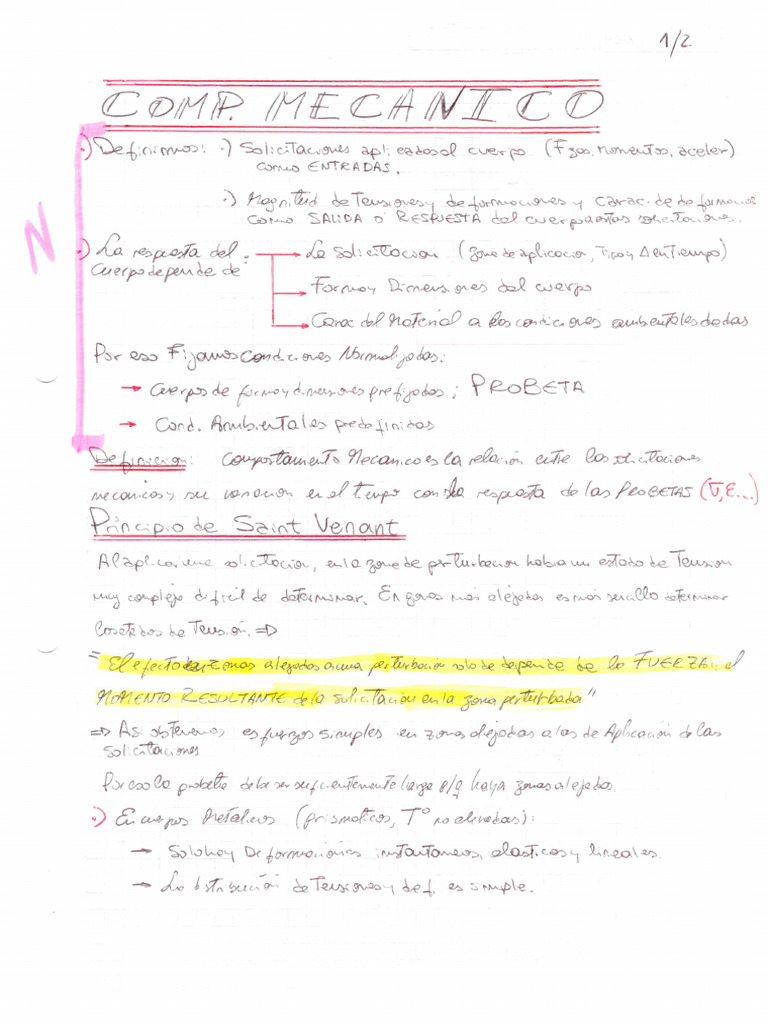 1/2
COMP. MECANICO
·) Definimos: ·) Solicitaciones aplicadas al cuerpo (Fzas, Momentos, aceler)
como ENTRADAS.
·) Magnitud de Tensiones y deformaciones y carac. de deformacion
como SALIDA O RESPUESTA del cuerpo a estas solicitaciones.
N
·) La respuesta del : → La Solicitacion (zona de aplicacion, Tipo y Δ en Tiempo)
cuerpo depende de
→ Forma y Dimensiones del cuerpo
→ Carac del Material a las condiciones ambientales dadas
Por eso Fijamos Condiciones Normalizadas:
→ Cuerpos de forma y dimensiones prefijadas ; PROBETA
→ Cond. Ambientales predefinidas
Definicion: Comportamiento Mecanico es la relación entre las solicitaciones
mecanicas y su variacion en el tiempo con la respuesta de las PROBETAS (σ, ε...)
Principio de Saint Venant
Al aplicar una solicitacion, en la zona de perturbacion habra un estado de Tension
muy complejo dificil de determinar. En zonas mas alejadas es mas sencillo determinar
los estados de Tensión. ⇒
"El efecto en zonas alejadas a una perturbacion solo depende de la FUERZA y el
MOMENTO RESULTANTE de la solicitacion en la zona perturbada"
⇒ Asi obtenemos esfuerzos simples en zonas alejadas a las de Aplicación de las
solicitaciones
Por eso la probeta debe ser suficientemente larga p/q haya zonas alejadas.
·) En cuerpos Metalicos (prismaticos, T° no elevadas):
→ Solo hay Deformaciones instantaneas, elasticas y lineales.
→ La distribución de Tensiones y def. es simple.